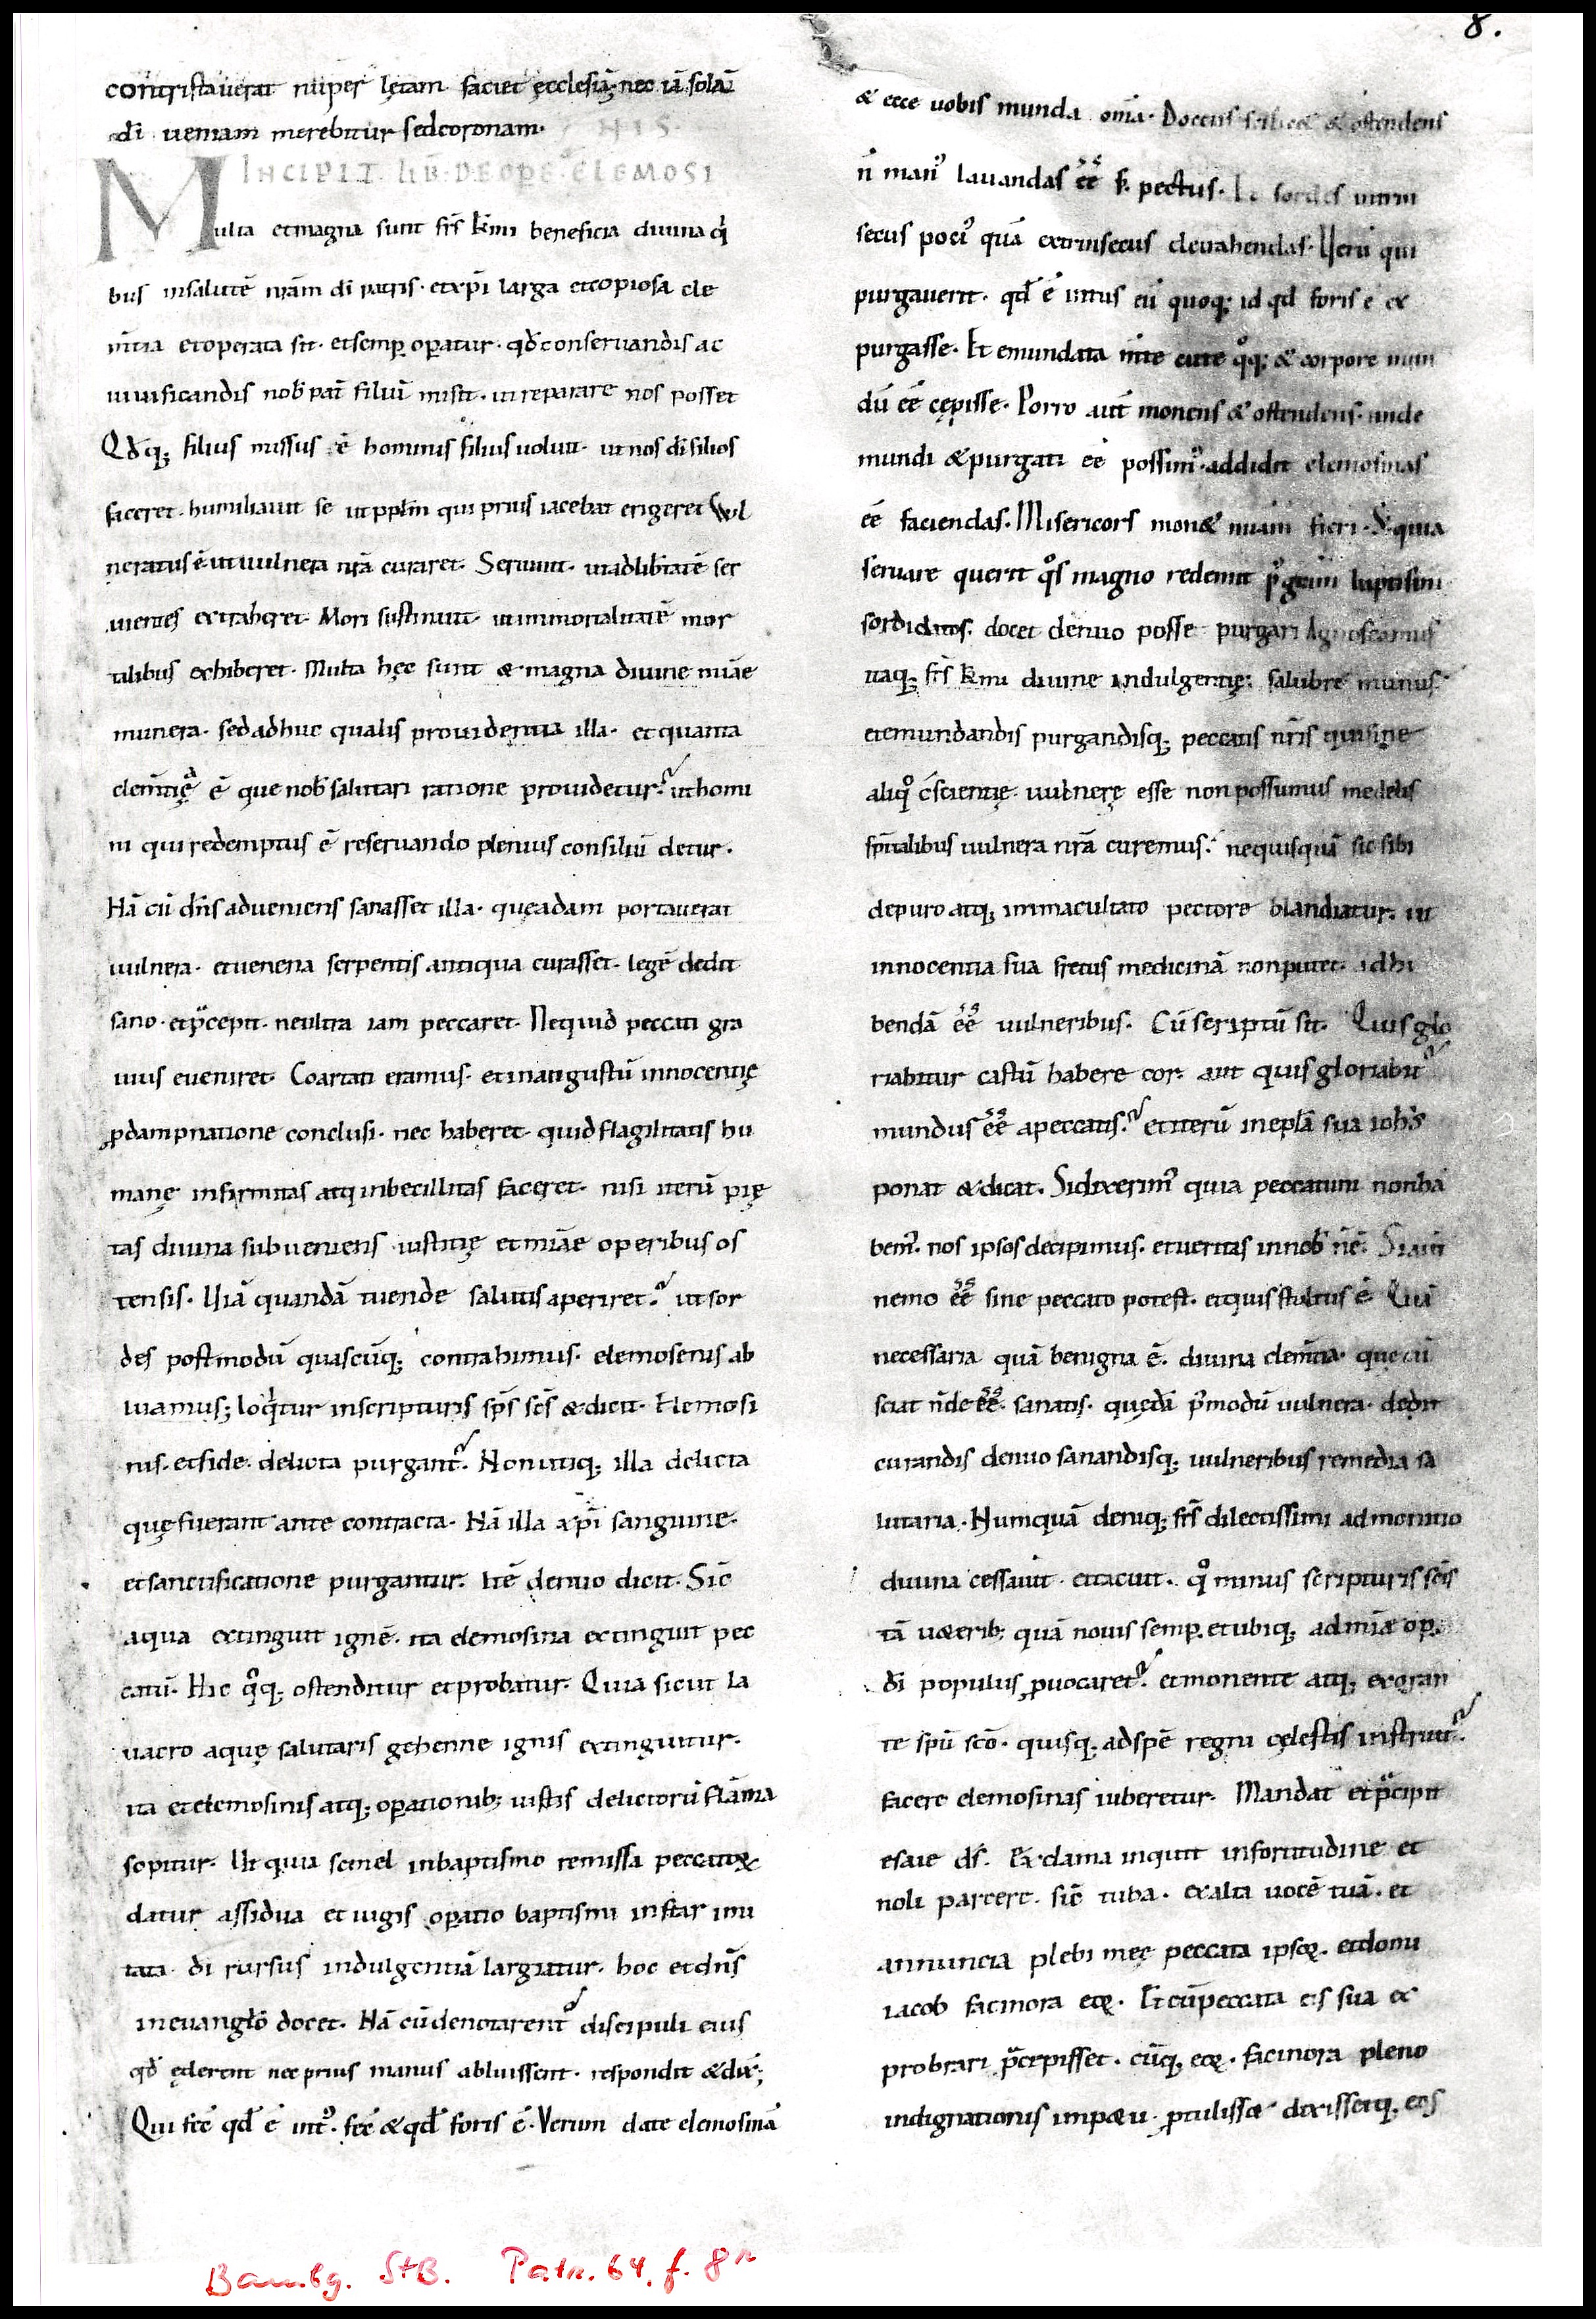 8.
contristauerat nuper lętam faciet ęcclesiā; nec iā solā
dī ueniam merebitur sed coronam.
NIS.
INCIPIT. LIB. DE OPE. ELEMOSI
Multa et magna sunt frs̄ kmi beneficia diuina q
bus insalutē nr̄am dī patris. et xp̄i larga et copiosa cle
mtia et operata sit. et semp̱ op̱atur. qd̄ conseruandis ac
uiuificandis nob pat̄ filiū misit. ut reparare nos posset
Qd̄q; filius missus ē hominis filius uoluit. ut nos dī filios
faceret. humiliauit se ut pplm̄ qui prius iacebat erigeret Wl
neratus ē ut uulnera nr̄a curaret. Seruiuit. ut ad libtatē ser
uientes extraheret. Mori sustinuit. ut inmortalitatē mor
talibus exhiberet. Multa hęc sunt & magna diuine miāe
munera. sed adhuc qualis prouidentia illa. et quanta
clem̄tię ē que nob salutari ratione prouidetur. ut homi
ni qui redemptus ē reseruando plenius consiliū detur.
Nā cū dn̄s adueniens sanasset illa. que adam portauerat
uulnera. et uenena serpentis antiqua curasset. legē dedit
sano. et p̄cepit. ne ultra iam peccaret. Ne quid peccati gra
uius eueniret. Coartati eramus. et in angustū innocentię
p̱dampnatione conclusi. nec haberet. quid flagilitatis hu
manę infirmitas atq inbecillitas faceret. nisi iterū pię
tas diuina subueniens iustitię et miāe operibus os
tensis. Uiā quandā tuende salutis aperiret. ut sor
des postmodū quascūq; contrahimus. elemosenis ab
luamus; loqitur in scripturis sp̄s sc̄s & dicit. Elemosi
nis. et fide. delicta purgant. Non utiq; illa delicta
quę fuerant ante contracta. Nā illa xp̄i sanguine.
et sanctificatione purgantur. Itē denuo dicit. Sic̄
aqua extinguit ignē. ita elemosina extinguit pec
catū. Hic qq; ostenditur et probatur. Quia sicut la
uacro aquę salutaris gehenne ignis extinguitur.
ita et elemosinis atq; op̱ationib; iustis delictorū flāma
sopitur. Et quia semel in baptismo remissa peccatoꝝ
datur assidua et iugis op̱atio baptismi instar imi
tata dī rursus indulgentiā largiatur. hoc et dn̄s
in euanglo docet. Nā cū denotarent discipuli eius
qd̄ ederent nec prius manus abluissent. respondit & dix̄;
Qui fec̄ qd̄ ē int. fec̄ & qd̄ foris ē. Verum date elemosinā
& ecce uobis munda om̄a. Docens scilicet & ostendens
n̄ man lauandas ēē s. pectus. sordes intrin
secus poci quā extrinsecus detrahendas. Uerū qui
purgauerit. qd̄ ē intus eū quoq; id qd̄ foris ē ex
purgasse. Et emundata mte cute qq; & corpore mun
dū ēē cępisse. Porro aut̄ monens & ostendens. unde
mundi & purgati ēē possim. addidit elemosinas
ēē faciendas. Misericors monet miam fieri. & quia
seruare querit qs magno redemit p gtm̄ baptismi
sordidatos. docet denuo posse purgari Agnoscamus
itaq; frs̄ kmi diuine indulgentię; salubre munus.
et emundandis purgandisq; peccatis nr̄is qui sine
aliq c̄scientię uulnerę esse non possumus medelis
spitalibus uulnera nr̄a curemus. ne quisquā sic sibi
de puro atq; immacultato pectore blandiatur. ut
innocentia sua fretus medicinā non putet. adhi
bendā ēē uulneribus. Cū scriptū sit. Quis glo
riabitur castū habere cor. aut quis gloriabit
mundus ēē a peccatis. et iterū in epl̄a sua ioh̄s
ponat & dicat. Si dixerim quia peccatum non ha
bem. nos ipsos decipimus. et ueritas in nob nē. Si aut̄
nemo ēē sine peccato potest. et quis stultus ē Quā
necessaria quā benigna ē. diuina clem̄tia. que cū
sciat n̄ deēē. sanatis. quędā p̄modū uulnera. dedit
curandis denuo sanandisq; uulneribus remedia sa
lutaria. Numquā deniq; frs̄ dilectissimi admonitio
diuina cessauit. et tacuit. q minus scripturis sc̄is
tā ueterib; quā nouis semp̱. et ubiq; ad miæ op̱.
dī populus p̱uocaret. et monente atq; exoran
te spū scō. quisq; ad spē regni cęlestis instruit.
facere elemosinas iuberetur. Mandat et p̄cipit
esaie ds̄. Exclama inquit in fortitudine et
noli parcere. sic̄ tuba. exalta uocē tuā. et
annuncia plebi meę peccata ipsoꝝ. et domi
iacob facinora eoꝝ. Et cū peccata eis sua ex
probrari p̄cepisset. cūq; eoꝝ. facinora pleno
indignationis impetu. p̱tulisset dixissetq; eis
Bambg. StB. Patr. 64, f. 8r